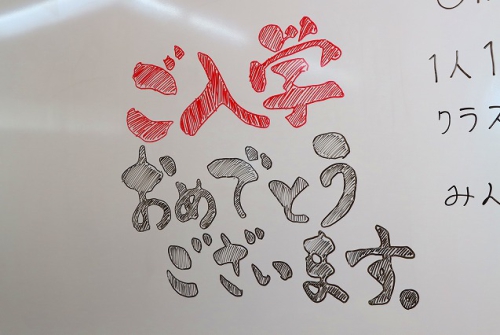 ご入学
おめでとう
ございます。
1人1
クラス
みん